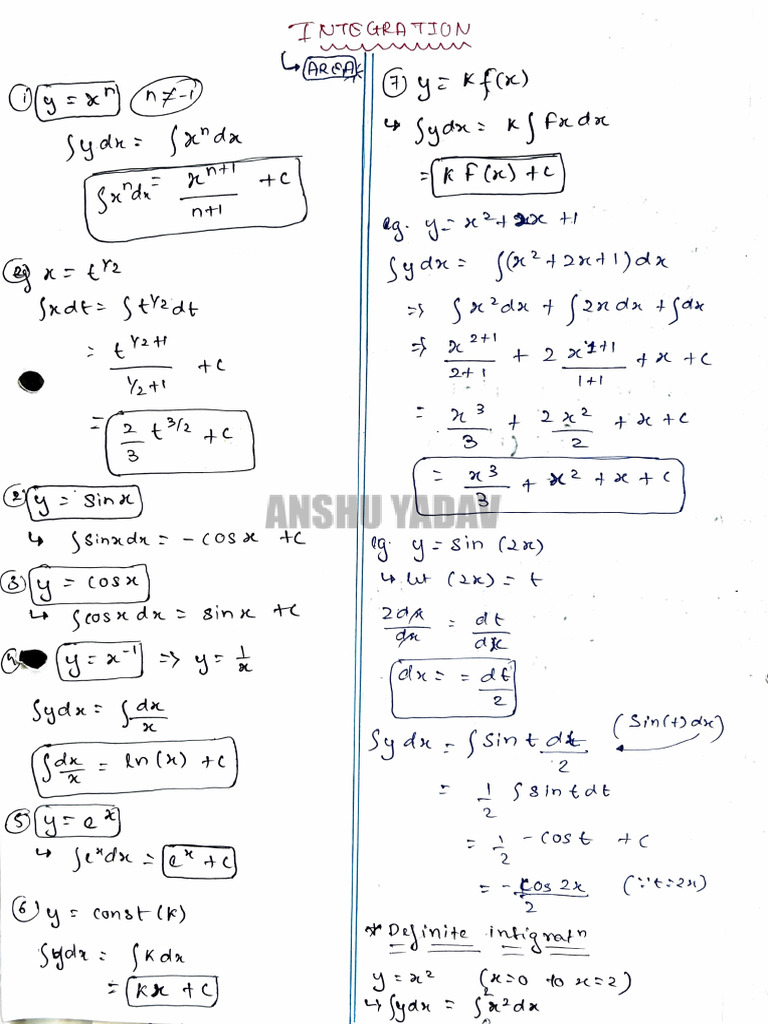 INTEGRATION
↳ AREA
① y = xⁿ n ≠ -1
∫ydx = ∫xⁿdx
∫xⁿdx = xⁿ⁺¹/n+1 + c
eg x = t^1/2
∫xdt = ∫t^1/2 dt
= t^1/2+1 / 1/2+1 + c
= 2/3 t^3/2 + c
② y = sinx
↳ ∫sinxdx = -cosx + c
③ y = cosx
↳ ∫cosxdx = sinx + c
④ y = x⁻¹ => y = 1/x
∫ydx = ∫dx/x
∫dx/x = ln(x) + c
⑤ y = eˣ
↳ ∫eˣdx = eˣ + c
⑥ y = const (k)
∫ydx = ∫kdx
= kx + c
⑦ y = k f(x)
↳ ∫ydx = k∫fxdx
= k F(x) + c
eg. y = x² + 2x + 1
∫ydx = ∫(x² + 2x + 1)dx
=> ∫x²dx + ∫2xdx + ∫dx
=> x²⁺¹/2+1 + 2 x¹⁺¹/1+1 + x + c
= x³/3 + 2x²/2 + x + c
= x³/3 + x² + x + c
ANSHU YADAV
eg. y = sin (2x)
↳ let (2x) = t
2dx/dx = dt/dx
dx = = dt/2
∫ydx = ∫sint dt/2 (sin(t)dx)
= 1/2 ∫sintdt
= 1/2 - cost + c
= - cos2x/2 (∵ t=2x)
* Definite intigratn
y = x² (x=0 to x=2)
↳ ∫ydx = ∫²x²dx